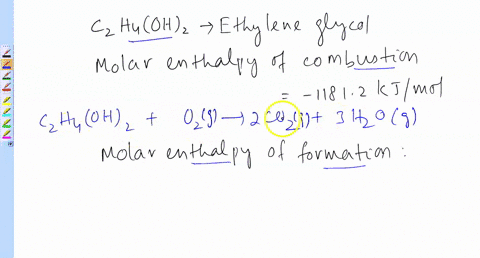 C₂H₄(OH)₂ → Ethylene glycol
Molar enthalpy of combustion
= -1181.2 kJ/mol
C₂H₄(OH)₂ + O₂(g) → 2CO₂(g) + 3H₂O(g)
Molar enthalpy of formation :